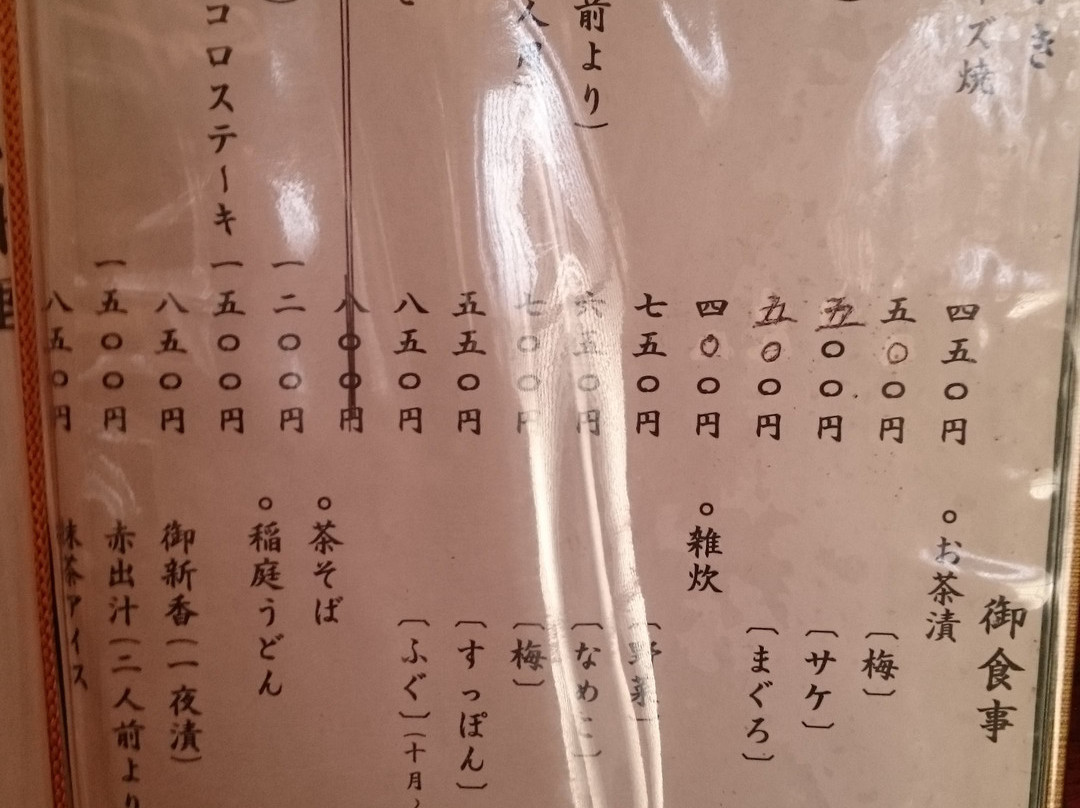 き
ズ焼
四五〇円
五〇〇円
五〇〇円
五〇〇円
四〇〇円
七五〇円
前より) 六五〇円
人 七〇〇円
五五〇円
八五〇円
八〇〇円
一二〇〇円
コロステーキ 一五〇〇円
八五〇円
一五〇〇円
八五〇円
御食事
○お茶漬
〔梅〕
〔サケ〕
〔まぐろ〕
○雑炊
〔野菜〕
〔なめこ〕
〔梅〕
〔すっぽん〕
〔ふぐ〕(十月
○茶そば
○稲庭うどん
御新香(一夜漬)
赤出汁(二人前より
抹茶アイス